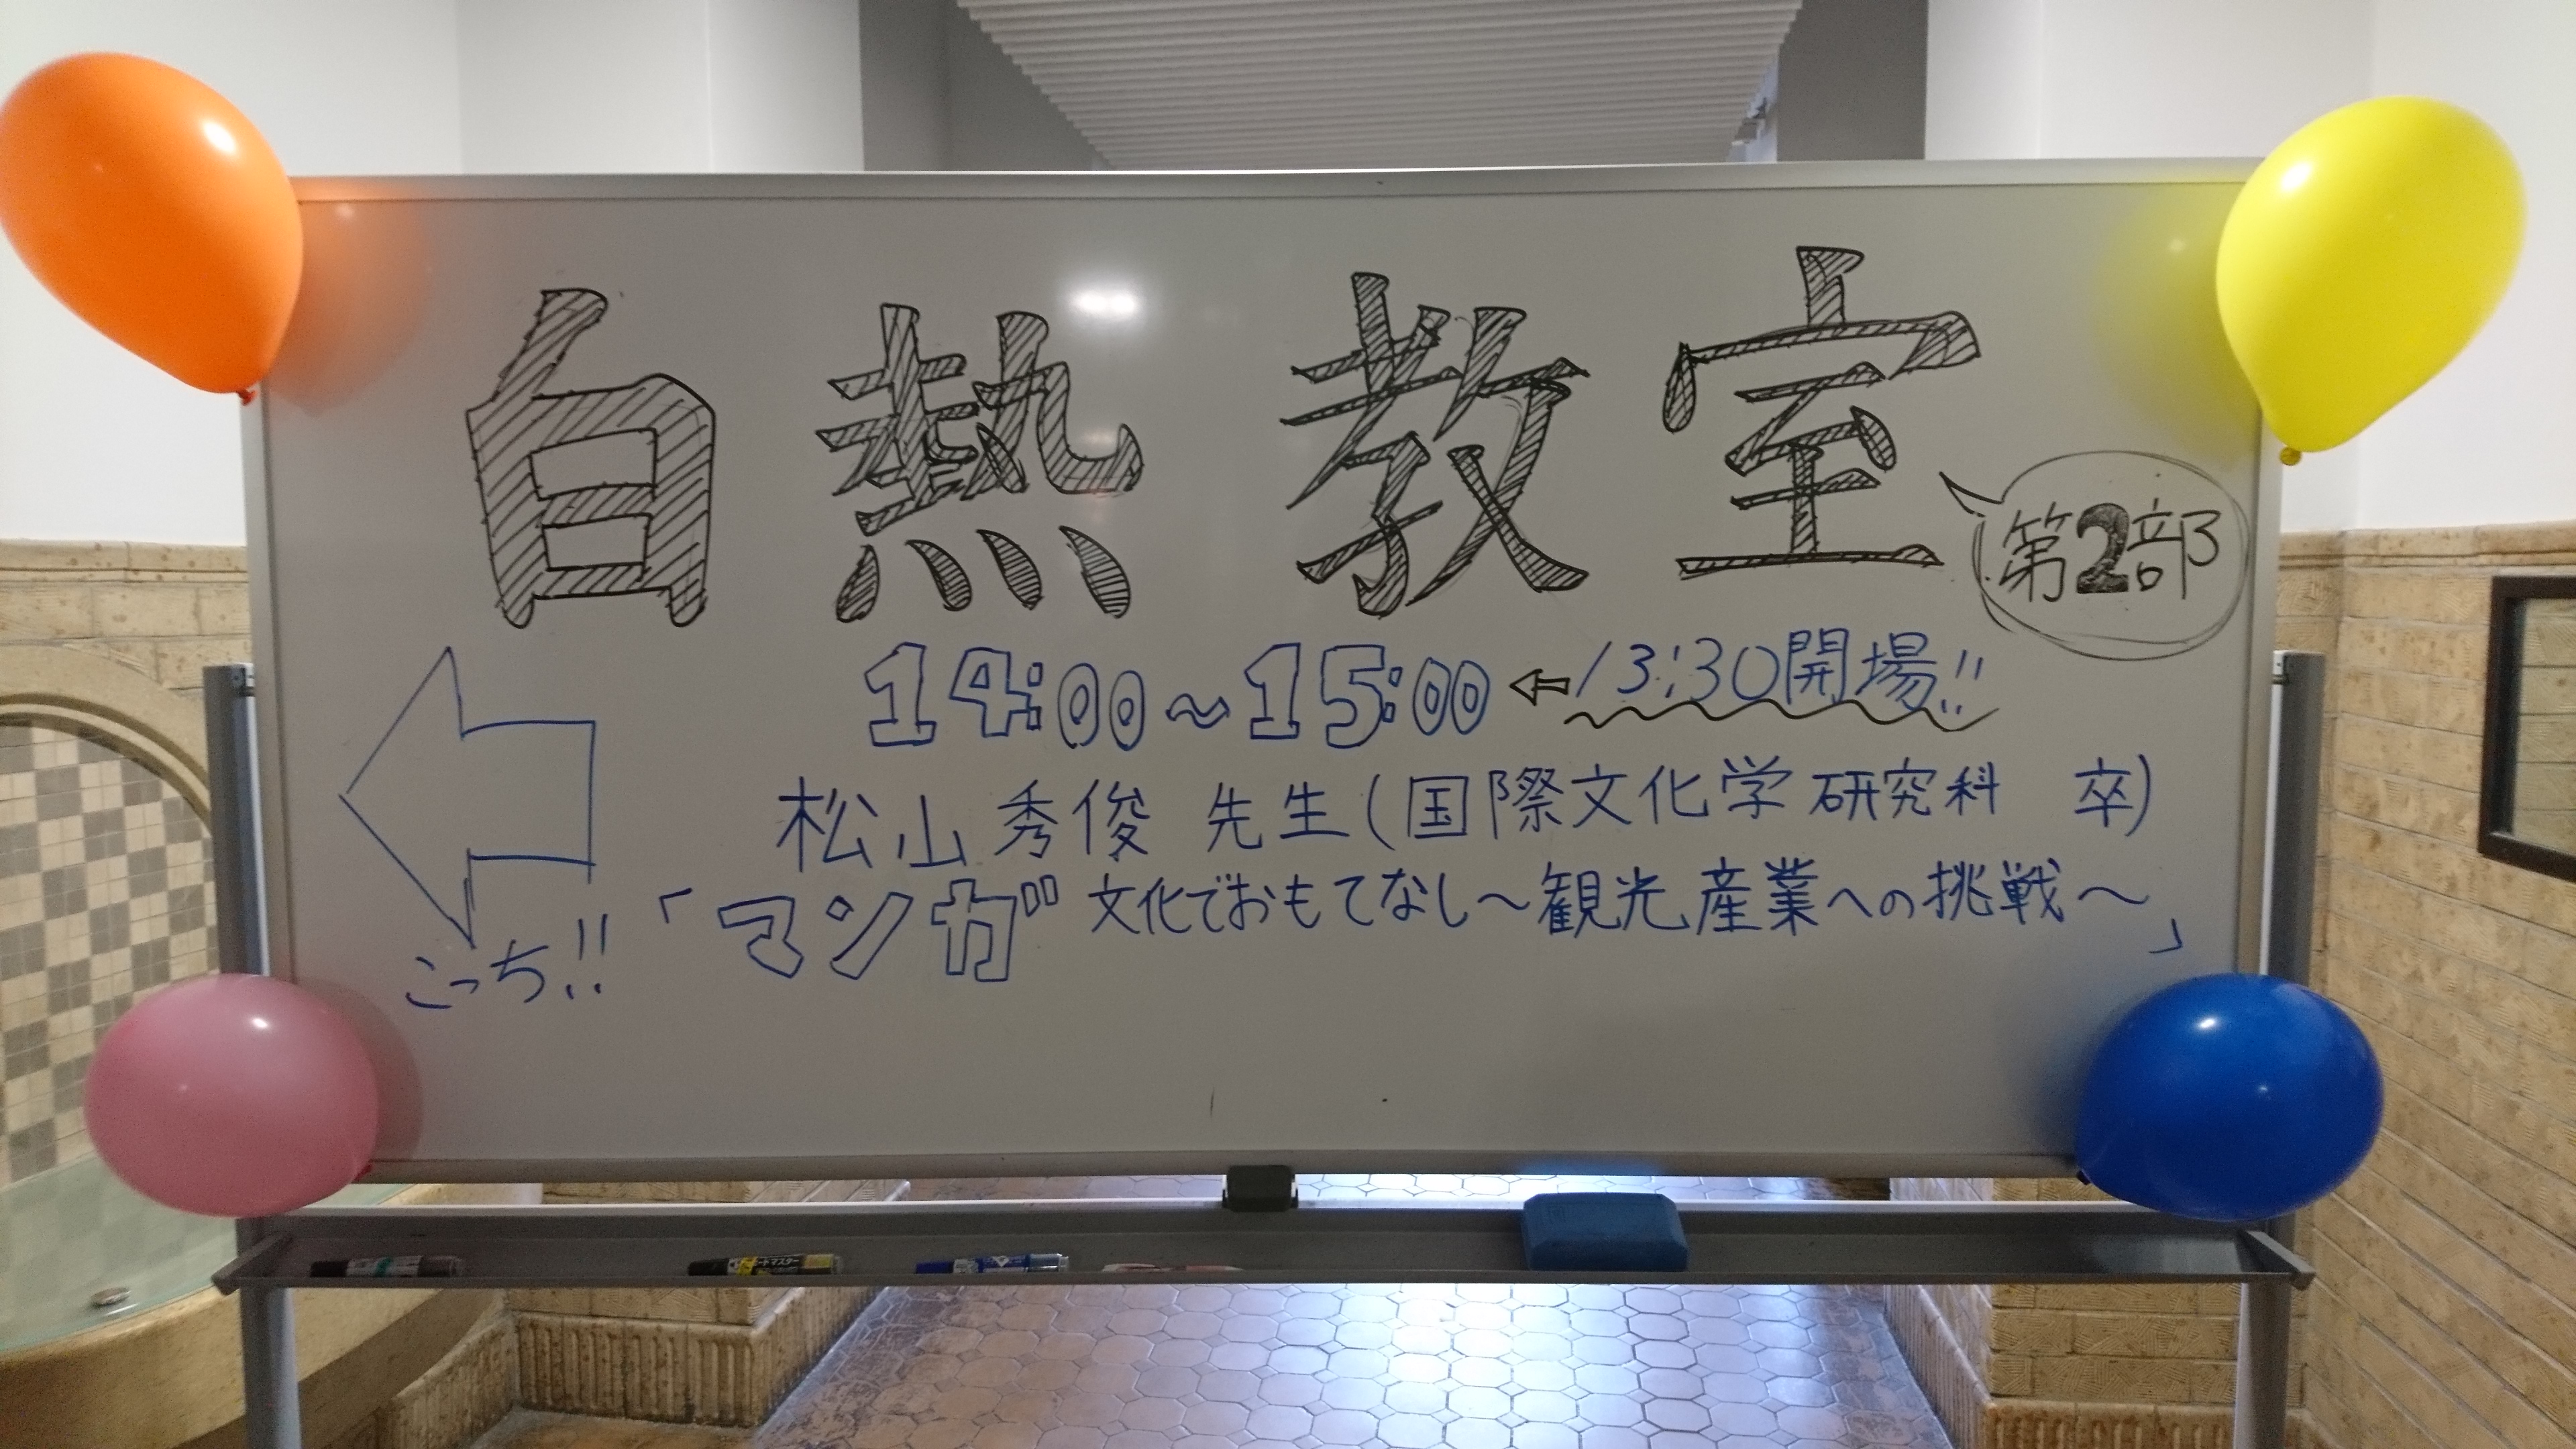 白熱教室
第2部
14:00～15:00 ← 13:30開場!!
松山秀俊 先生(国際文化学研究科 卒)
「マンガ文化でおもてなし～観光産業への挑戦～」
こっち!!